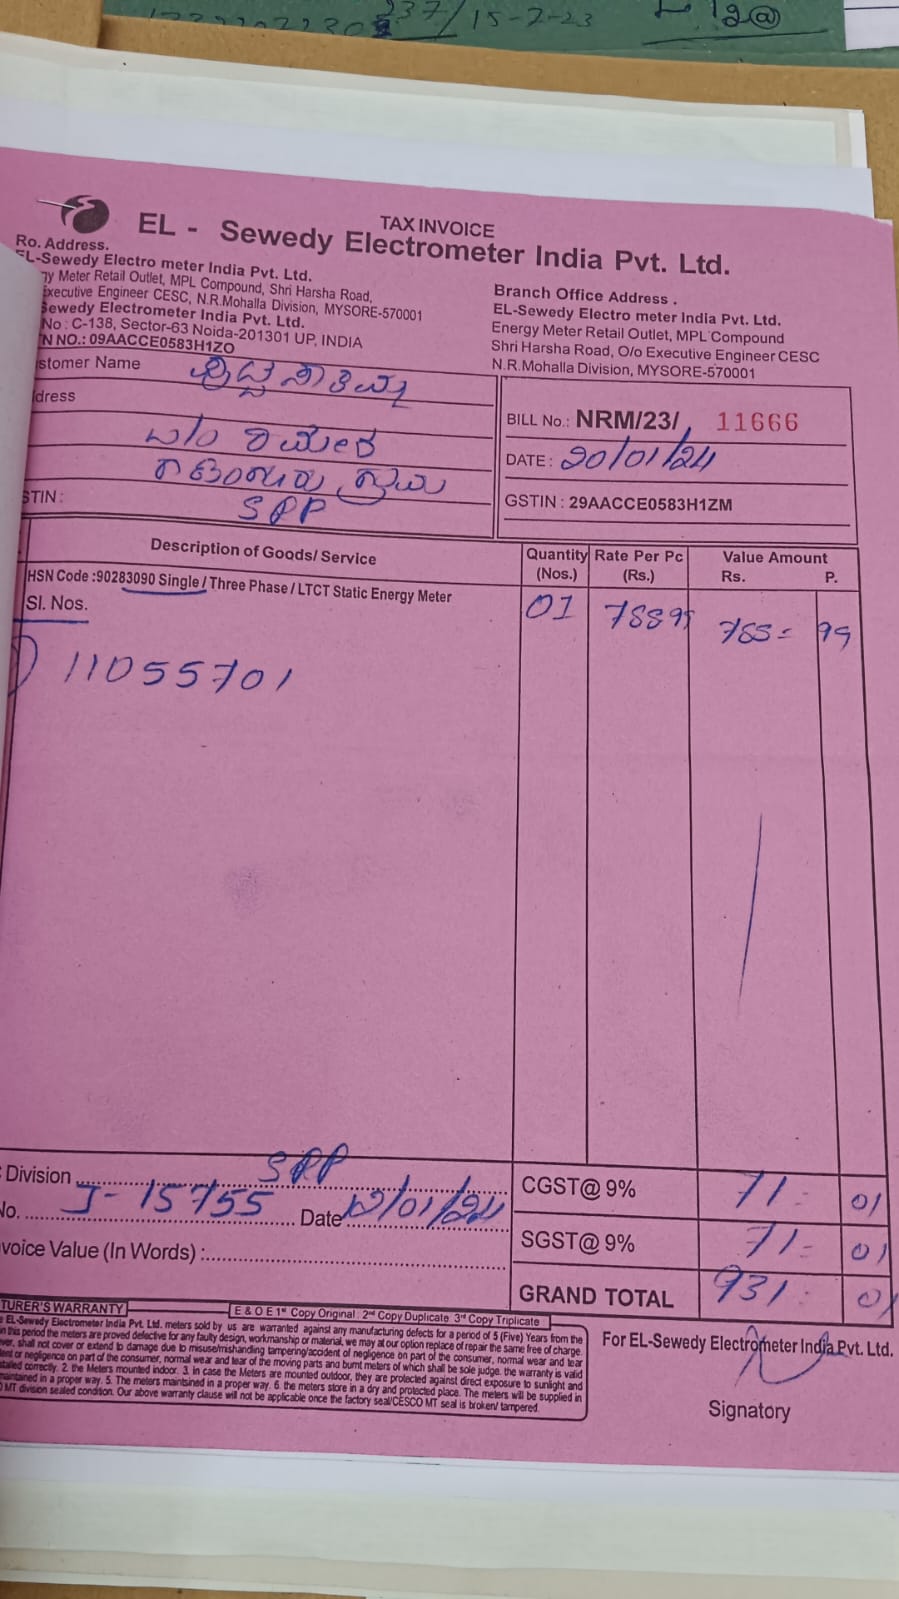 237/15-7-23
12@
TAX INVOICE
EL - Sewedy Electrometer India Pvt. Ltd.
Ro. Address.
EL-Sewedy Electro meter India Pvt. Ltd.
gy Meter Retail Outlet, MPL Compound, Shri Harsha Road,
Executive Engineer CESC, N.R.Mohalla Division, MYSORE-570001
Sewedy Electrometer India Pvt. Ltd.
No : C-138, Sector-63 Noida-201301 UP, INDIA
N NO.: 09AACCE0583H1ZO
Branch Office Address .
EL-Sewedy Electro meter India Pvt. Ltd.
Energy Meter Retail Outlet, MPL Compound
Shri Harsha Road, O/o Executive Engineer CESC
N.R.Mohalla Division, MYSORE-570001
stomer Name
dress
SPP
STIN :
BILL No.: NRM/23/ 11666
DATE : 20/01/24
GSTIN : 29AACCE0583H1ZM
Description of Goods/ Service Quantity (Nos.) Rate Per Pc (Rs.) Value Amount Rs. P.
HSN Code :90283090 Single / Three Phase / LTCT Static Energy Meter 01 788 99 788= 99
Sl. Nos.
1) 11055701
Division SPP
No. J-15755 Date 12/01/24
voice Value (In Words) :
CGST@ 9% 71- 01
SGST@ 9% 71- 01
GRAND TOTAL 931- 01
TURER'S WARRANTY E & O E 1st Copy Original : 2nd Copy Duplicate 3rd Copy Triplicate
EL-Sewedy Electrometer India Pvt. Ltd. meters sold by us are warranted against any manufacturing defects for a period of 5 (Five) Years from the
in this period the meters are proved defective for any faulty design, workmanship or material, we may at our option replace of repair the same free of charge.
ever, shall not cover or extend to damage due to misuse/mishandling tampering/accident of negligence on part of the consumer, normal wear and tear
dent or negligence on part of the consumer, normal wear and tear of the moving parts and burnt meters of which shall be sole judge. the warranty is valid
stalled correctly. 2. the Meters mounted indoor. 3. In case the Meters are mounted outdoor, they are protected against direct exposure to sunlight and
maintained in a proper way. 5. The meters maintsined in a proper way. 6. the meters store in a dry and protected place. The meters will be supplied in
MT division sealed condition. Our above warranty clause will not be applicable once the factory seal/CESCO MT seal is broken/ tampered.
For EL-Sewedy Electrometer India Pvt. Ltd.
Signatory